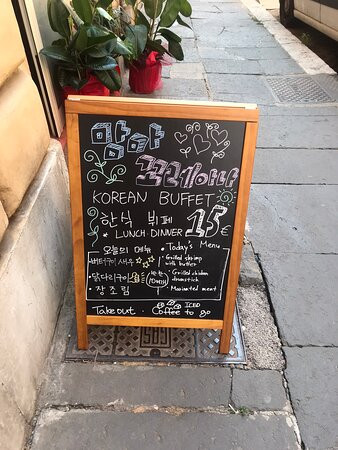 꼬레아나
KOREAN BUFFET
한식 뷔페 15€
* LUNCH DINNER
오늘의 메뉴 • Today's Menu
버터구이 새우 • Grilled shrimp with butter
• 닭다리구이 • Grilled chicken drumstick
• 장조림 • Marinated meat
Take out • ICED
Coffee to go